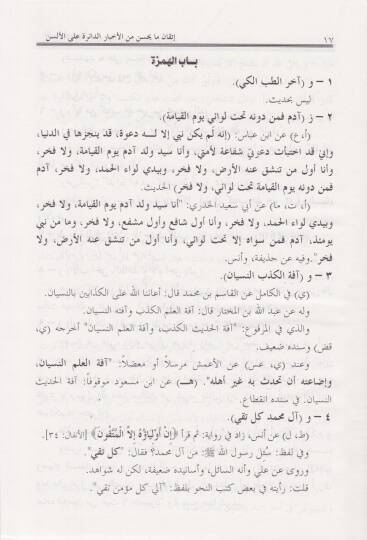 ١٧ إتقان ما يحسن من الأخبار الدائرة على الألسن
باب الهمزة
١ – و (آخر الطب الكي).
ليس بحديث.
٢ – ز (آدم فمن دونه تحت لوائي يوم القيامة).
(أ، ع) عن ابن عباس: (إنه لم يكن نبي إلا له دعوة، قد ينجزها في الدنيا،
وإني قد اختبأت دعوتي شفاعة لأمتي، وأنا سيد ولد آدم يوم القيامة، ولا فخر،
وأنا أول من تنشق عنه الأرض، ولا فخر، وبيدي لواء الحمد، ولا فخر، آدم
فمن دونه يوم القيامة تحت لوائي، ولا فخر) الحديث.
(أ، ت، ما) عن أبي سعيد الخدري: "أنا سيد ولد آدم يوم القيامة، ولا فخر،
وبيدي لواء الحمد، ولا فخر، وأنا أول شافع وأول مشفع، ولا فخر، وما من نبي
يومئذ، آدم فمن سواه إلا تحت لوائي، وأنا أول من تنشق عنه الأرض، ولا
فخر". وفيه عن حذيفة، وأنس.
٣ – و (آفة الكذب النسيان).
(ي) في الكامل عن القاسم بن محمد قال: أعاننا الله على الكذابين بالنسيان.
وله عن عبد الله بن المختار قال: آفة العلم الكذب وآفته النسيان.
والذي في المرفوع: "آفة الحديث الكذب، وآفة العلم النسيان" أخرجه (ي،
قض) وسنده ضعيف.
وعند (ي، عس) عن الأعمش مرسلاً أو معضلاً: "آفة العلم النسيان،
وإضاعته أن تحدث به غير أهله". (هـ) عن ابن مسعود موقوفاً: آفة الحديث
النسيان. في سنده انقطاع.
٤ – و (آل محمد كل تقي).
(ط، ل) عن أنس، زاد في رواية: ثم قرأ ﴿إِنْ أَوْلِيَاؤُهُ إِلاَّ الْمُتَّقُونَ﴾ [الأنفال: ٣٤].
وفي لفظ: سُئل رسول الله ﷺ: من آل محمد؟ فقال: "كل تقي".
وروى عن علي وأنه السائل، وأسانيده ضعيفة، لكن له شواهد.
قلت: رأيته في بعض كتب النحو بلفظ: "آلي كل مؤمن تقي".